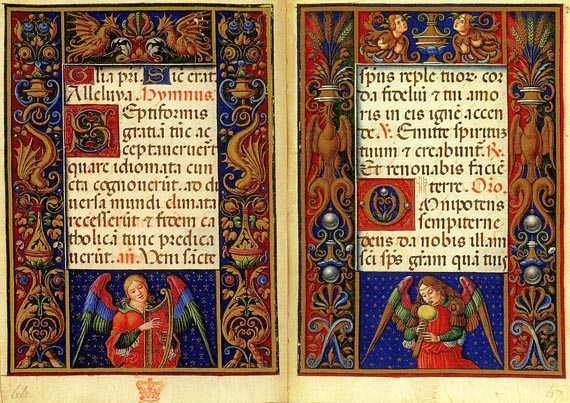 Glia pri. Sic erat
Alleluya. Hymnus
Septiformis
gratiā tūc ac
ceptaverūt
quare idiomata cun
cta cognoverūt. ad di
versa mundi climata
recesserūt & fidem ca
tholicā tunc predica
verūt. añ. Veni sācte
66
spūs reple tuor cor
da fideliū & tui amo
ris in eis ignē accen
de. V. Emitte spiritum
tuum & creabunt. R.
Et renovabis faciē
terre. Orō.
Omnipotens
sempiterne
deus da nobis illam
sci spūs gram quā tuis
67